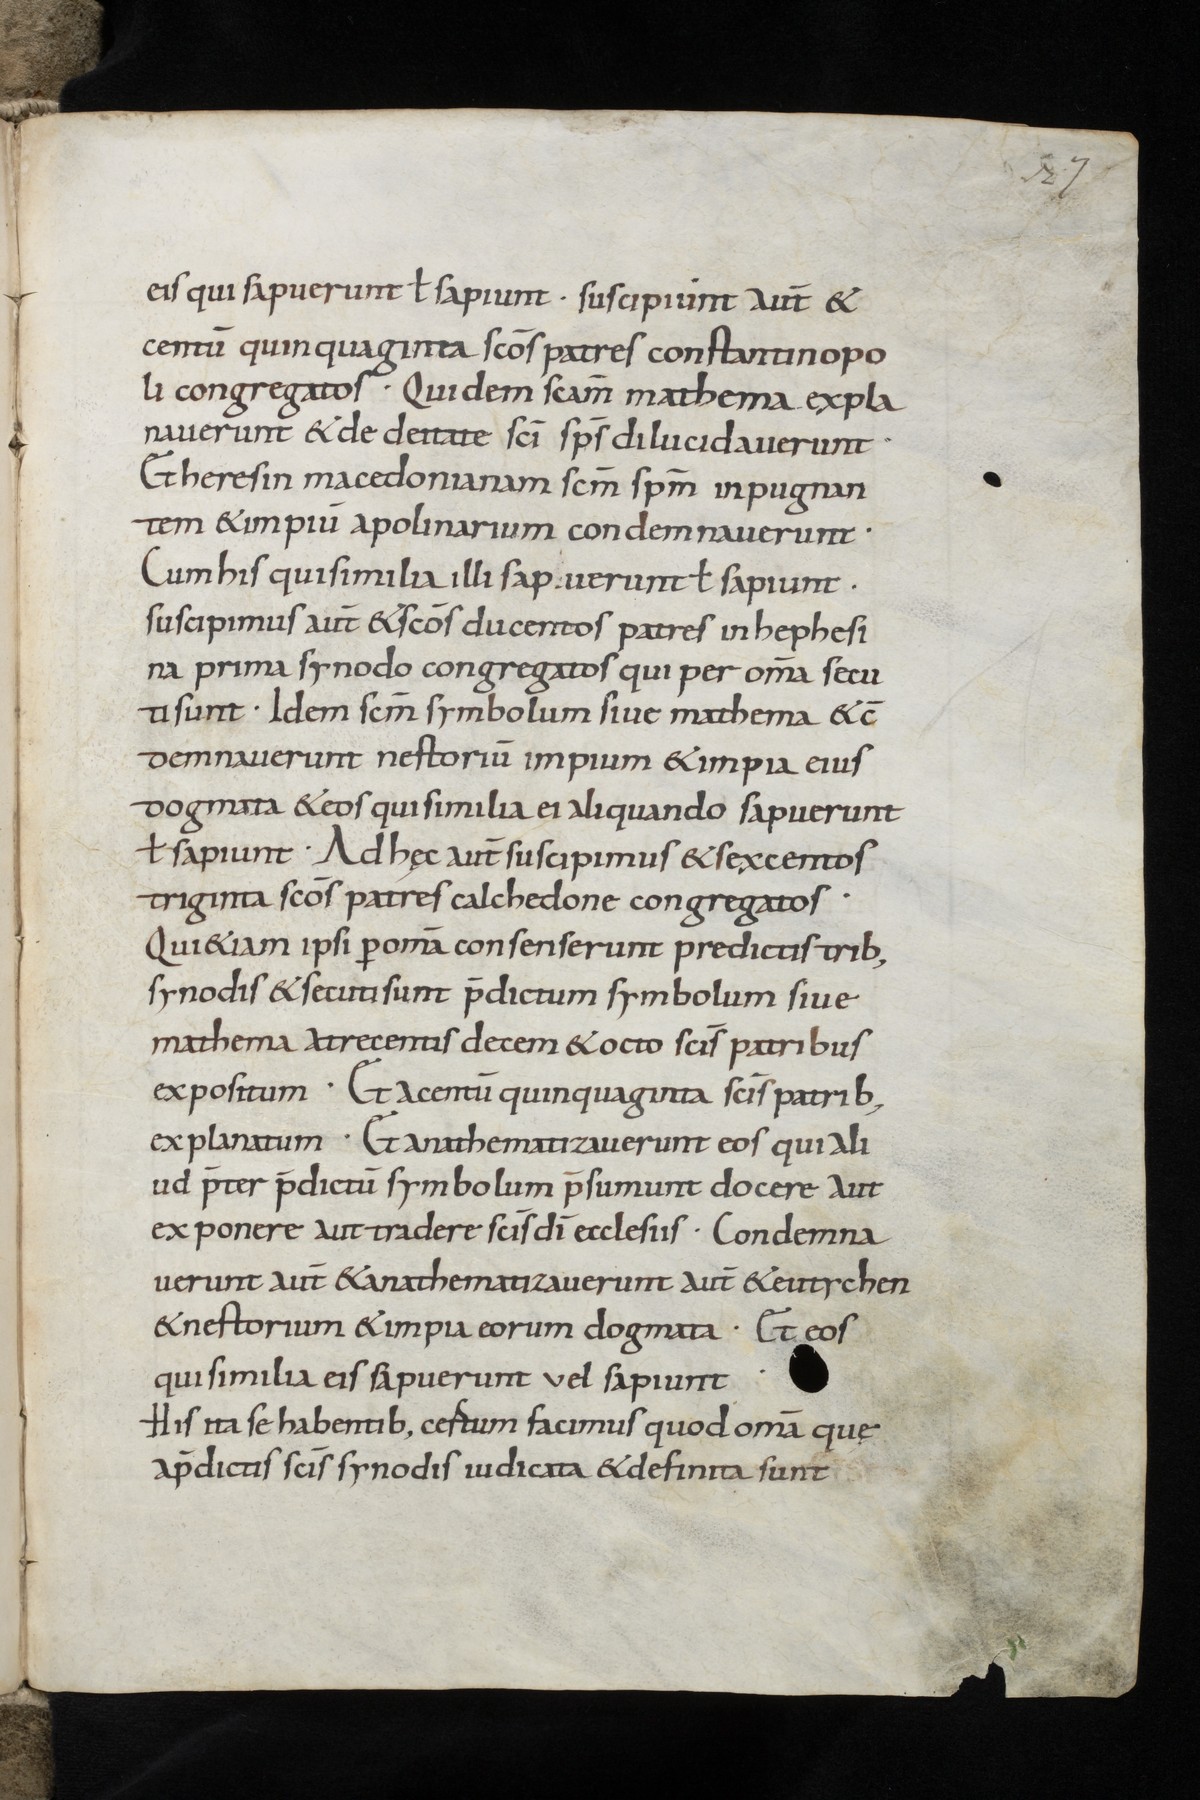 527
eis qui sapuerunt ł sapiunt · suscipiunt aut̄ &
centū quinquaginta scōs patres constantinopo
li congregatos · Quidem scam̄ mathema expla
nauerunt & de deitate scī sp̄s dilucidauerunt ·
Et heresin macedonianam scm̄ spm̄ inpugnan
tem & impiū apolinarium condemnauerunt ·
Cum his qui similia illi sapuerunt ł sapiunt ·
suscipimus aut̄ & scōs ducentos patres in hephesi
na prima synodo congregatos qui per om̄a secu
ti sunt · Idem scm̄ symbolum siue mathema & c̄
demnauerunt nestoriū impium & impia eius
dogmata & eos qui similia ei aliquando sapuerunt
ł sapiunt · Ad hęc aut̄ suscipimus & sexcentos
triginta scōs patres calchedone congregatos ·
Qui &iam ipsi ꝑ omā consenserunt predictis trib;
synodis & secuti sunt p̄dictum symbolum siue
mathema a trecentis decem & octo scīs patribus
expositum · Et a centū quinquaginta scīs patrib;
explanatum · Et anathematizauerunt eos qui ali
ud p̄ter p̄dictū symbolum p̄sumunt docere aut
exponere aut tradere scīs dī ecclesiis · Condemna
uerunt aut̄ & anathematizauerunt aut̄ & eutychen
& nestorium & impia eorum dogmata · Et eos
qui similia eis sapuerunt vel sapiunt ·
His ita se habentib; certum facimus quod omā quę
a p̄dictis scīs synodis iudicata & definita sunt